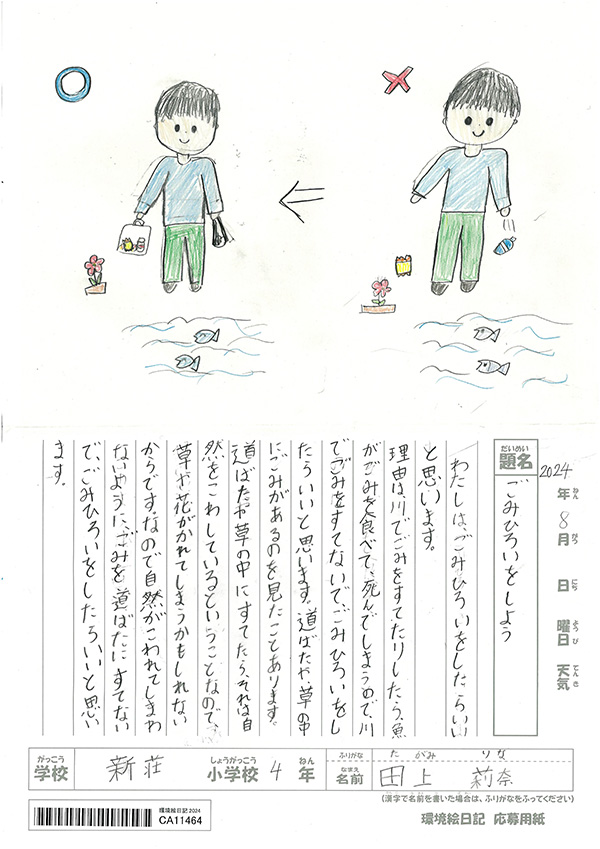 2024年8月 日 曜日 天気
ねん がつ にち ようび てんき
だいめい
題名
ごみひろいをしよう
わたしは、ごみひろいをしたらいい
と思います。
理由は、川でごみをすてたりしたら、魚
がごみを食べて、死んでしまうので、川
でごみをすてないで、ごみひろいをし
たらいいと思います。道ばたや、草の中
にごみがあるのを見たことあります。
道ばたや草の中にすてたら、それは自
然をこわしているということなので、
草や花がかれてしまうかもしれない
からです。なので自然がこわれてしまわ
ないように、ごみを道ばたにすてない
で、ごみひろいをしたらいいと思い
ます。
がっこう
学校
新荘
しょうがっこう
小学校
4
ねん
年
ふりがな
たがみ りな
なまえ
名前
田上 莉奈
(漢字で名前を書いた場合は、ふりがなをふってください)
環境絵日記 2024
CA11464
環境絵日記 応募用紙